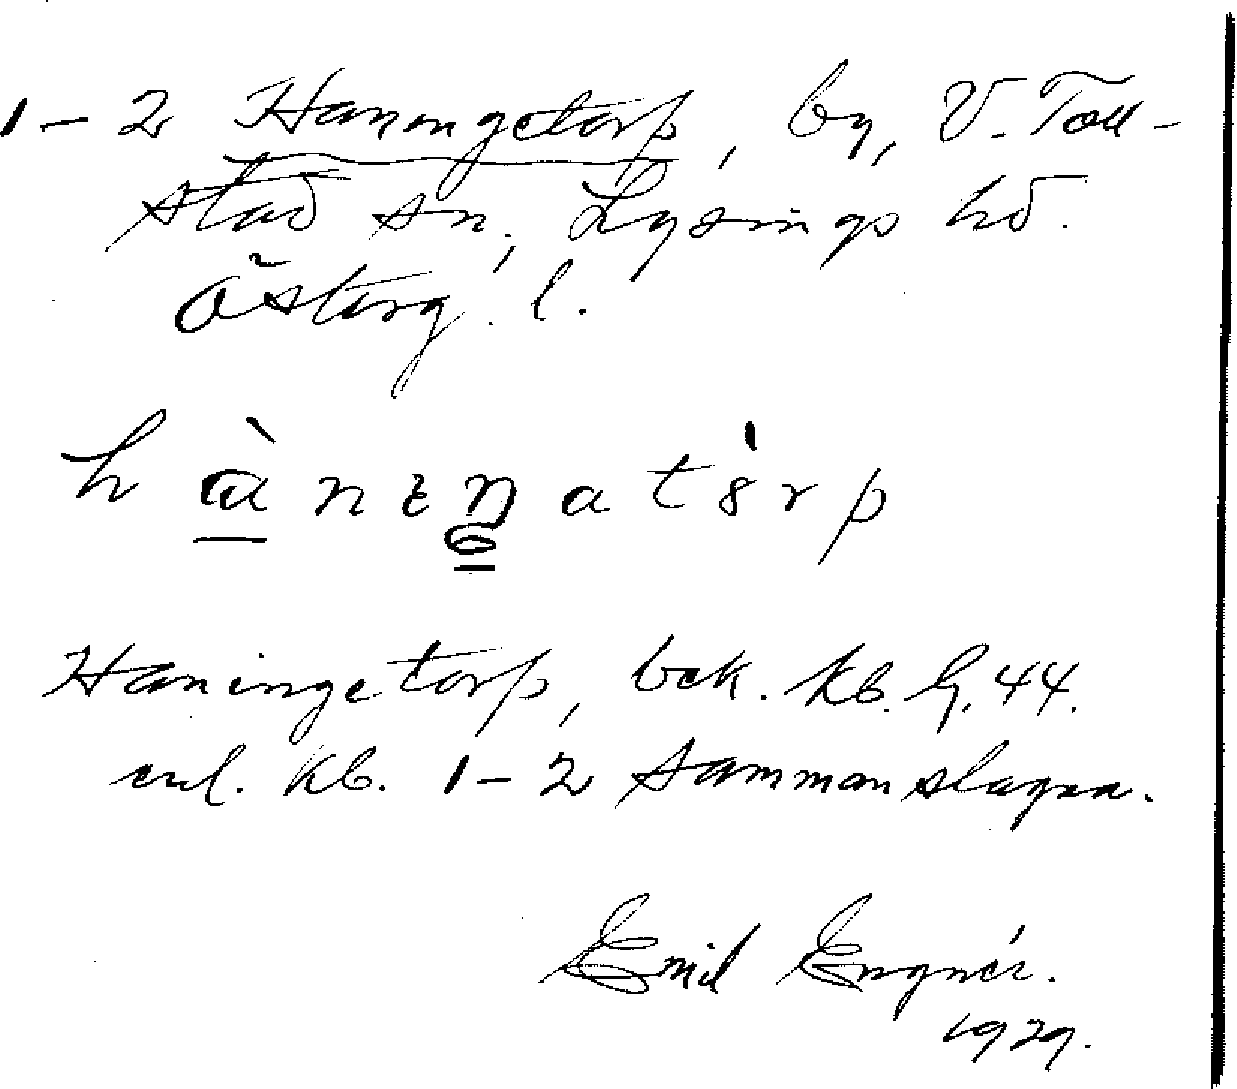 1-2 Haningetorp, by, V. Toll-
stad sn., Lysings hd.
Österg. l.
hànıŋatòrp
Haningetorp, bek. Kb. G. 44.
enl. Kb. 1-2 Sammanslagna.
Emil Engnér.
1929.